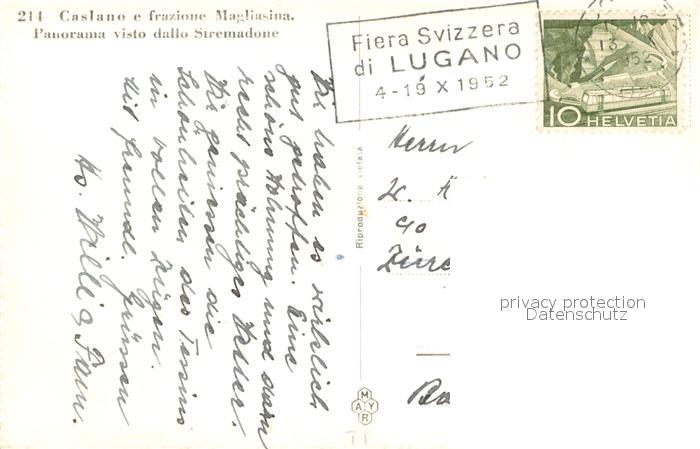 214 Caslano e frazione Magliasina.
Panorama visto dallo Stremadone
Fiera Svizzera
di LUGANO
4-19 X 1952
10 HELVETIA
Wir haben es wirklich
gut getroffen. Eine
schöne Wohnung und dazu
recht prächtiges Wetter.
Wir geniessen die
Schönheiten des Tessins
in vollen Zügen.
Mit freundl. Grüssen
Willi & Fam.
Riproduzione vietata
Herrn
MAYR
privacy protection
Datenschutz